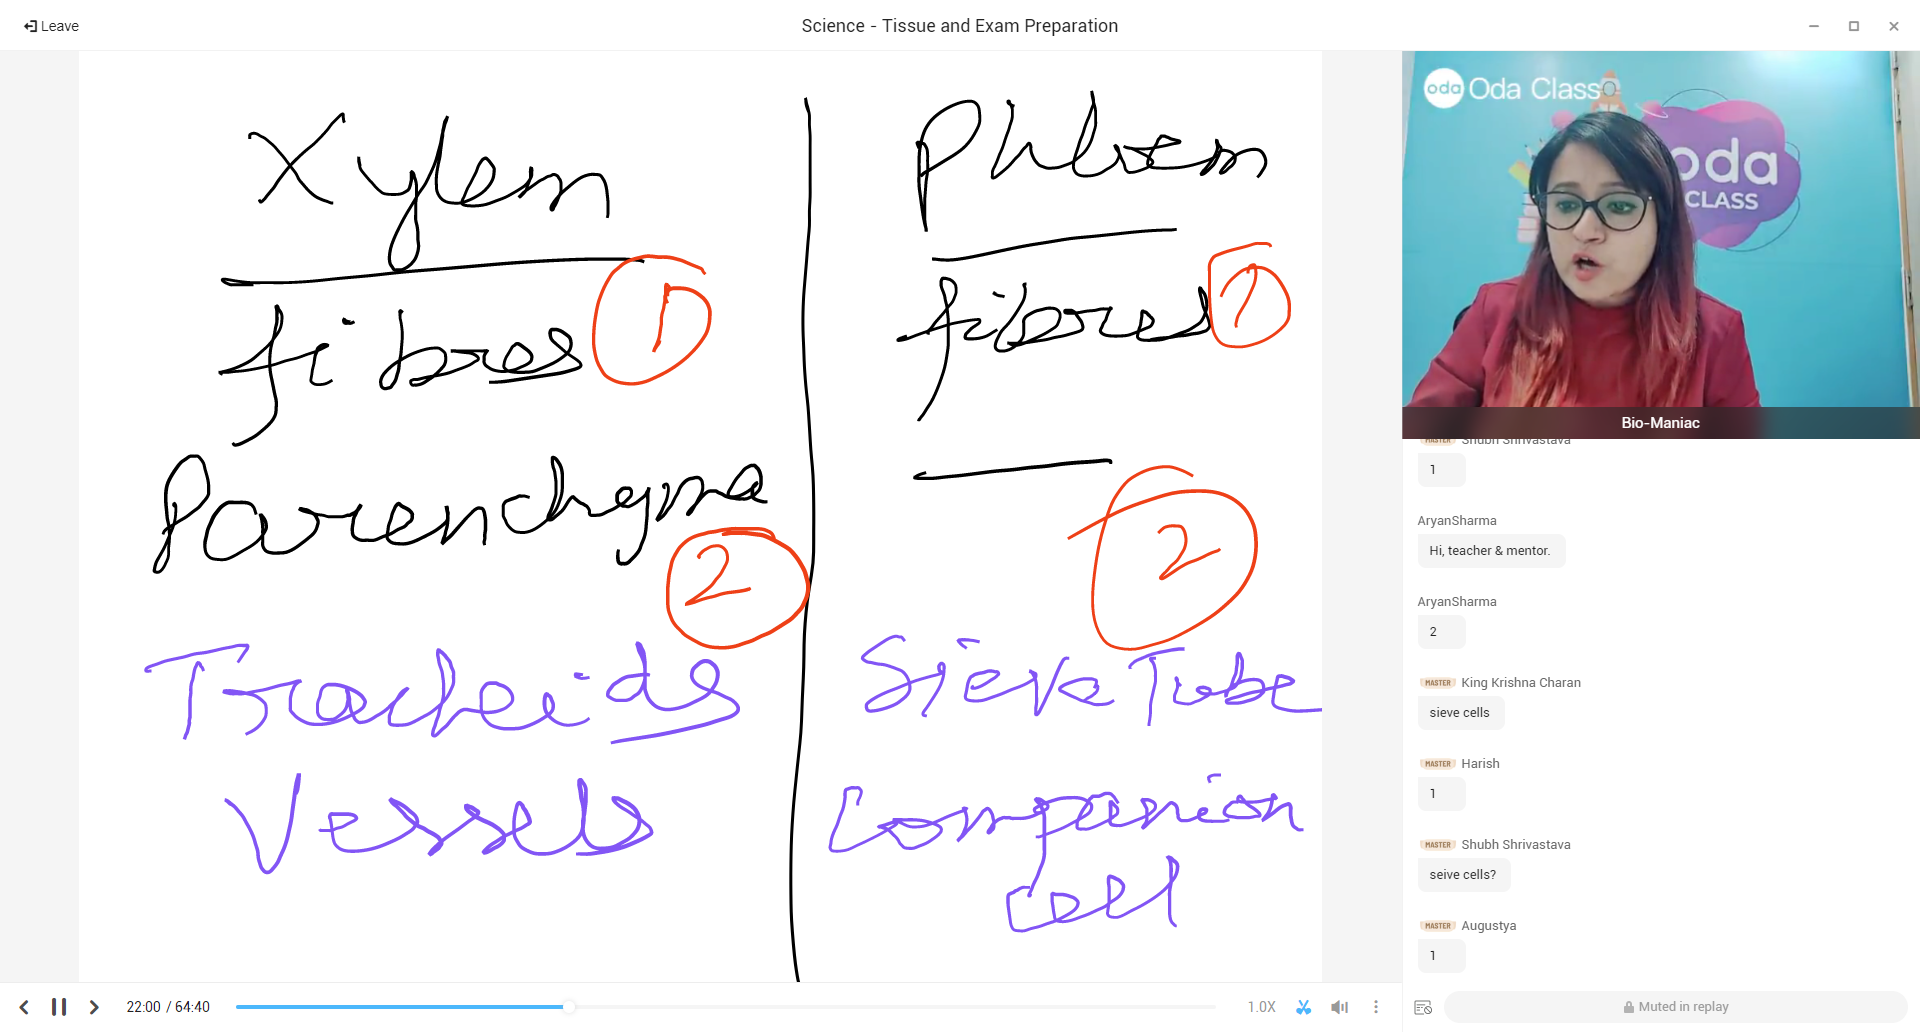 Leave
Science - Tissue and Exam Preparation
Xylem
fibres 1
Parenchyma
2
Tracheids
Vessels
Phloem
fibres 1
2
Sieve Tube
Companion
cell
oda Oda Class
oda
CLASS
Bio-Maniac
MASTER Shubh Shrivastava
1
AryanSharma
Hi, teacher & mentor.
AryanSharma
2
MASTER King Krishna Charan
sieve cells
MASTER Harish
1
MASTER Shubh Shrivastava
seive cells?
MASTER Augustya
1
22:00 / 64:40
1.0X
Muted in replay